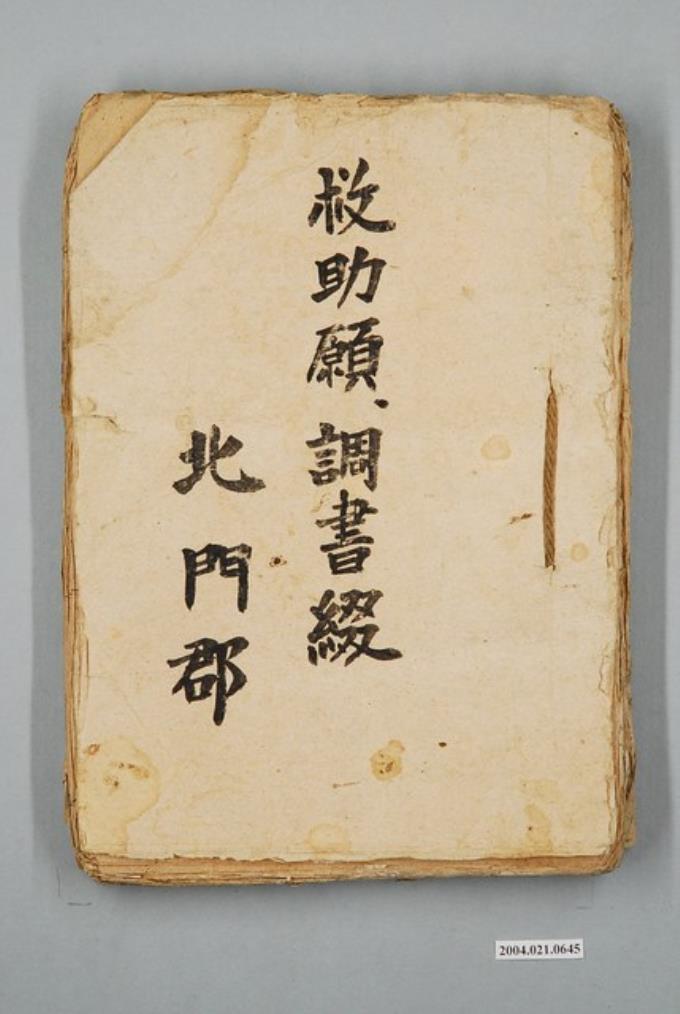 救助願、調書綴
北門郡
2004.021.0645